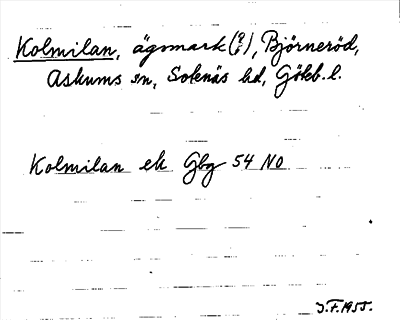 Kolmilan, ägomark (?), Björneröd,
Askums sn, Sotenäs hd, Göteb. l.
Kolmilan ek Gbg 54 NO
J.F. 1955.